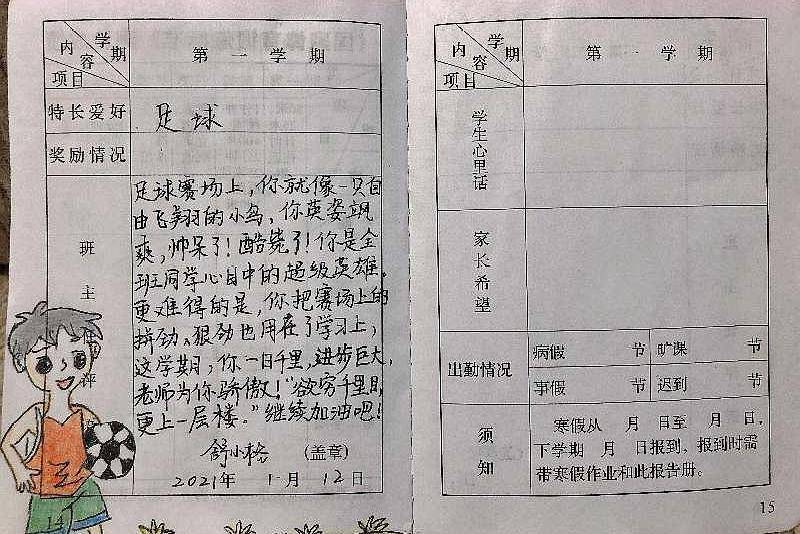 学期
内容
项目
第一学期
特长爱好
足球
奖励情况
班主
足球赛场上，你就像一只自
由飞翔的小鸟，你英姿飒
爽，帅呆了！酷毙了！你是全
班同学心目中的超级英雄。
更难得的是，你把赛场上的
拼劲、狠劲也用在了学习上，
这学期，你一日千里，进步巨大，
老师为你骄傲！“欲穷千里目，
更上一层楼。”继续加油吧！
舒小格（盖章）
2021年1月12日
14
学期
内容
项目
第一学期
学生心里话
家长希望
出勤情况
病假 节 旷课 节
事假 节 迟到 节
须知
寒假从 月 日至 月 日，
下学期 月 日报到，报到时需
带寒假作业和此报告册。
15